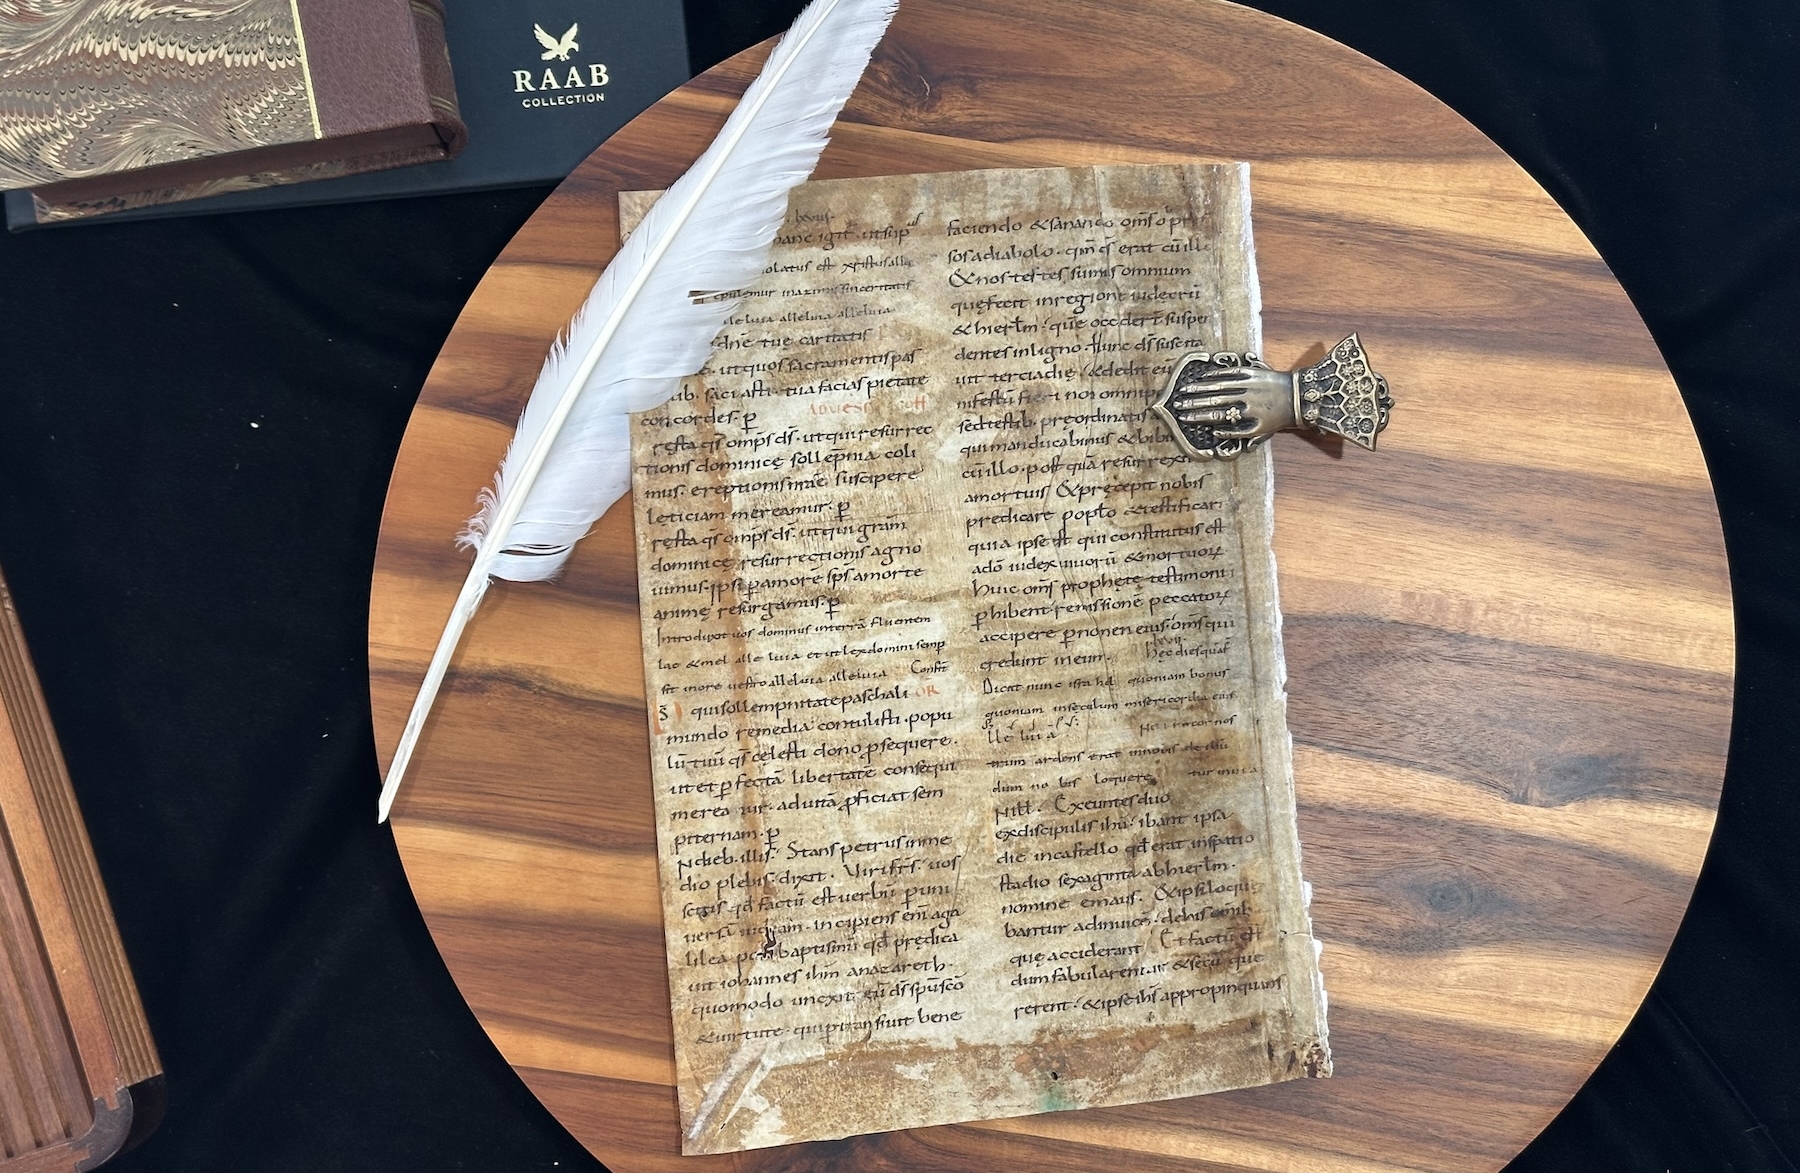 RAAB
COLLECTION
bonus.
hanc igit. ut sup
molatus est xpistus alle
epulemur in azimis sinceritatis
alleluia alleluia
dne tue caritatis
ut quos sacramentis pas
tua facias pietate
concordes. p
resta qs omps ds. ut qui resurrec
tionis dominicę sollepnia coli
mus. ereptionis suscipere
lęticiam mereamur. p
resta qs omps ds. ut qui gram
dominicę resurrectionis agno
uimus. ipsi p amorē sps a morte
animę resurgamus. p
Introduxit uos dominus in terrā fluentem
lac & mel alleluia et ut lex domini semp
sit in ore uestro alleluia alleluia Confit
OR
Ds qui sollempnitate paschali
mundo remedia contulisti. popu
lū tuū qs cęlesti dono psequere.
ut et pfectā libertatē consequi
mereatur. ad uitā pficiat sem
piternam. p
N dieb. illis. Stans petrus in me
dio plebis dixit. Viri frs. uos
scitis qd factū est uerbū p uni
uersā iudeam. Incipiens enī a ga
lilea post baptismū qd predica
uit iohannes ihm a nazareth.
quomodo unxit eū ds spu sco
& uirtute. qui ptransiuit bene
faciendo & sanando oms
sos a diabolo. qm ds erat cū illo
& nos testes sumus omnium
quę fecit in regione iudeorū
& hierlm. quē occider suspe
dentes in ligno. Hunc ds suscita
uit tercia die. & dedit eū
nifestū fieri non omni
sed testib. preordinatis
qui manducabimus & bibi
cū illo. post quā resurrexit
a mortuis & pręcepit nobis
predicare poplo & testificari
quia ipse est qui constitutus est
a dō iudex uiuorū & mortuorꝝ
Huic oms prophetę testimoni
phibent remissionē peccatorꝝ
accipere p nomen eius. oms qui
credunt in eum. Hęc dies quā f
Dicat nunc isrl quoniam bonus
quoniam in seculum misericordia eius
lleluia
num ardens erat in nobis de
dum nobis loquere
Exeuntes duo
ex discipulis ihu. ibant ipsa
die in castello qd erat in spatio
stadio sexaginta ab hierlm.
nomine emaus. & ipsi loque
bantur adinuicē. de his omib.
quę acciderant Et factū est
dum fabularentur & secū que
rerent. & ipse ihs appropinquans